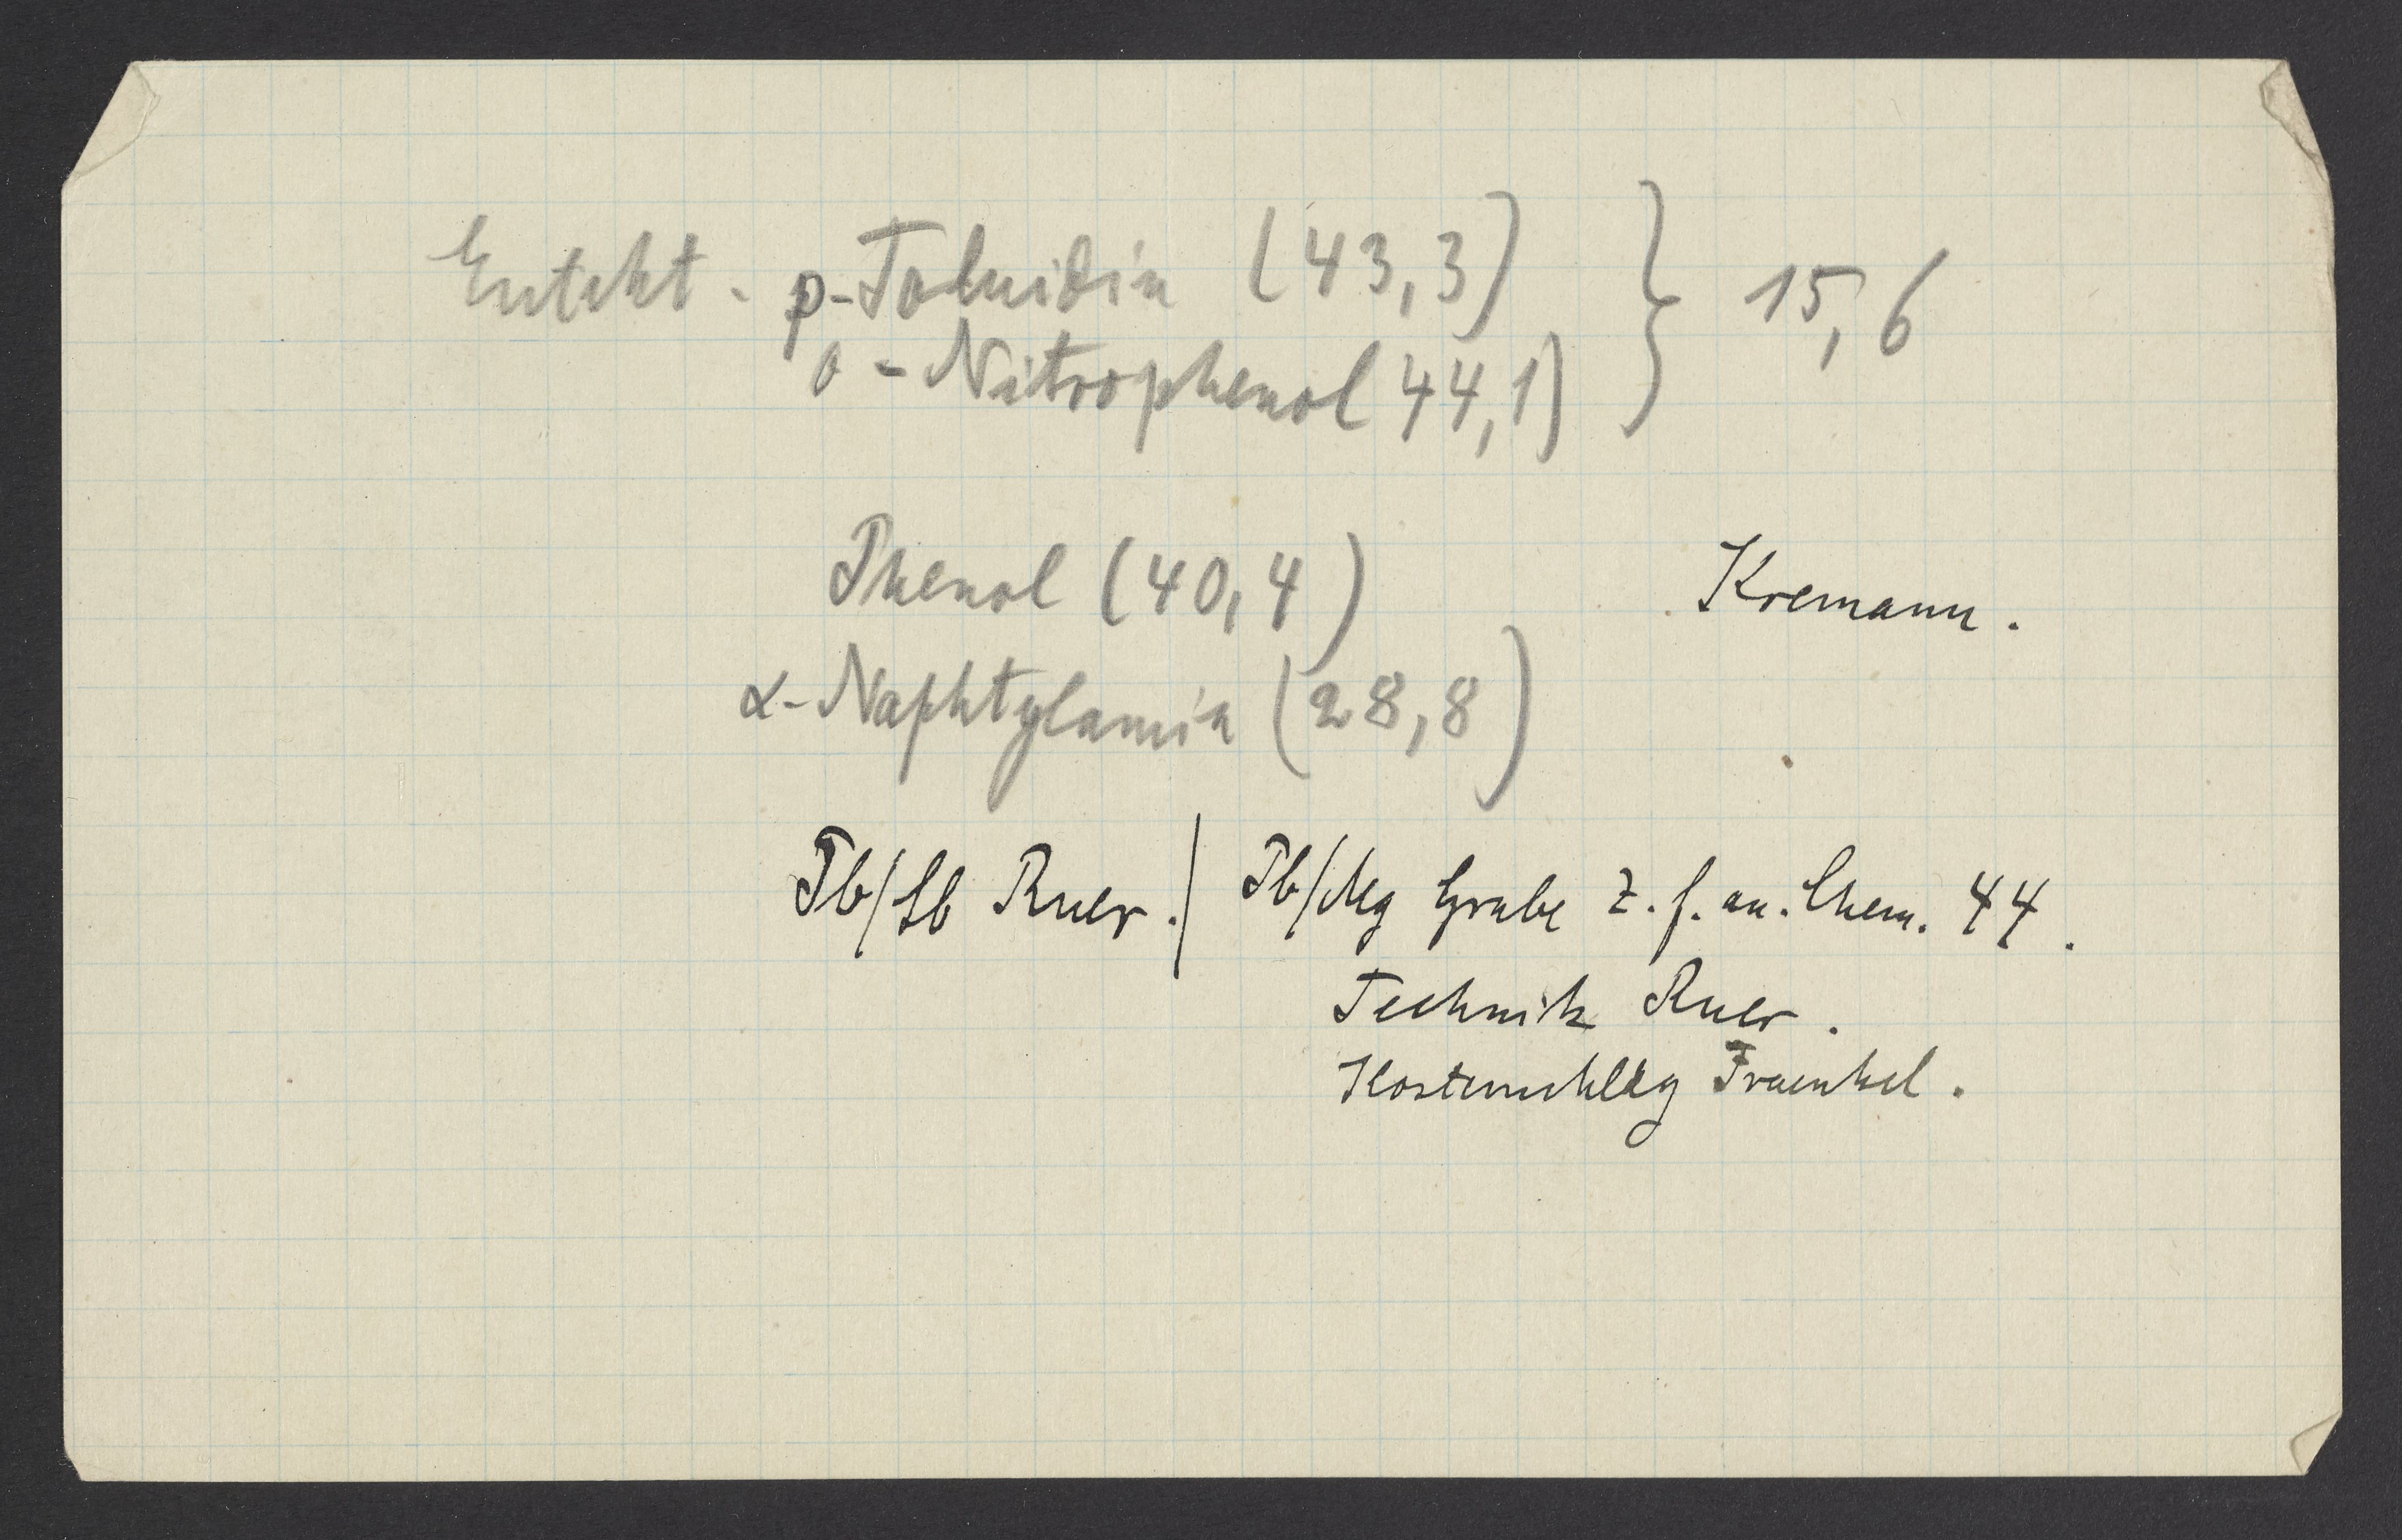 Eutekt. p-Toluidin (43,3) } 15,6
o-Nitrophenol 44,1)
Phenol (40,4) Kremann.
α-Naphtylamin (28,8)
Pb/Sb Ruer. / Pb/Mg Grube Z. f. an. Chem. 44.
Technik Ruer.
Fraenkel.